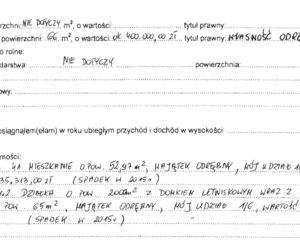 rzchni: NIE DOTYCZY m², o wartości: tytuł prawny:
powierzchni: 66 m², o wartości: ok. 400.000,00 zł tytuł prawny: WŁASNOŚĆ ODRĘ
o rolne:
darstwa: NIE DOTYCZY powierzchnia:
owy:
osiągnąłem(ełam) w roku ubiegłym przychód i dochód w wysokości:
mości:
4.1 MIESZKANIE O POW. 52,97 m², MAJĄTEK ODRĘBNY, MÓJ UDZIAŁ 1
35.313,00 zł (SPADEK W 2015r)
4.2. DZIAŁKA O POW. 2000 m² Z DOMKIEM LETNISKOWYM WRAZ Z
POW. 65 m², MAJĄTEK ODRĘBNY, MÓJ UDZIAŁ 1/6, WARTOŚĆ
(SPADEK W 2015r)